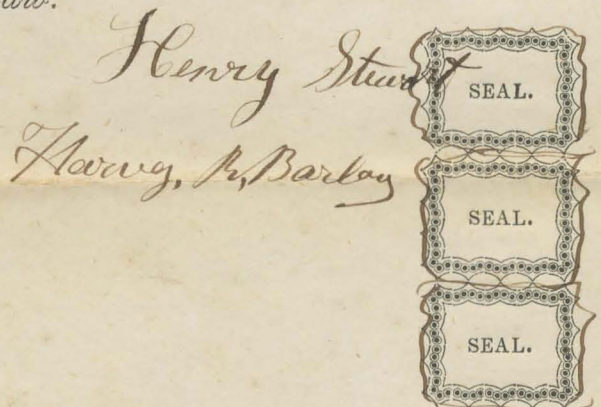 Henry Stewart SEAL.
Harvey, R, Barlay SEAL.
SEAL.